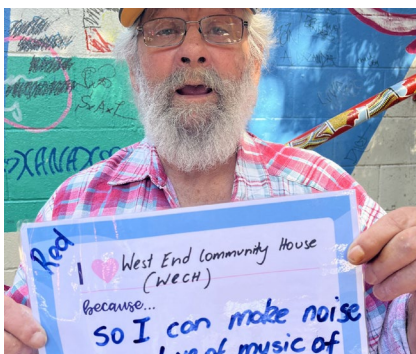 Red
I ♥ West End Community House
(WECH)
because...
so I can make noise
love of music of
XANAX